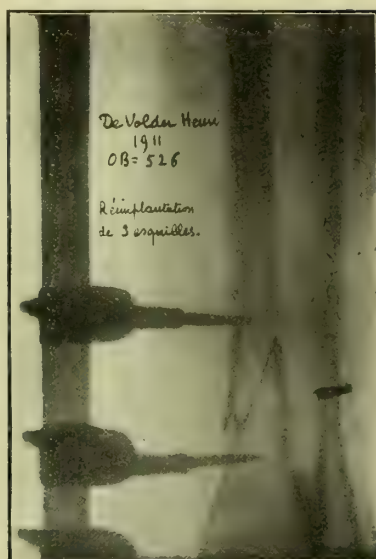 De Volder Henri
1911
OB = 526
Réimplantation
de 3 esquilles.